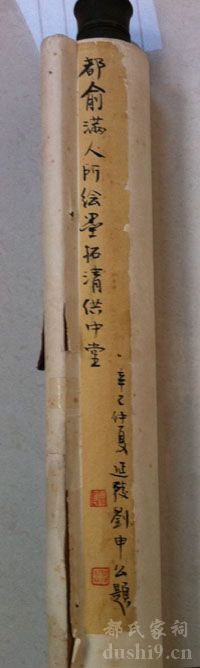 都俞满人所绘墨拓清供中堂
辛巳仲夏延陵劉申公題
都氏家祠
dushi9.cn